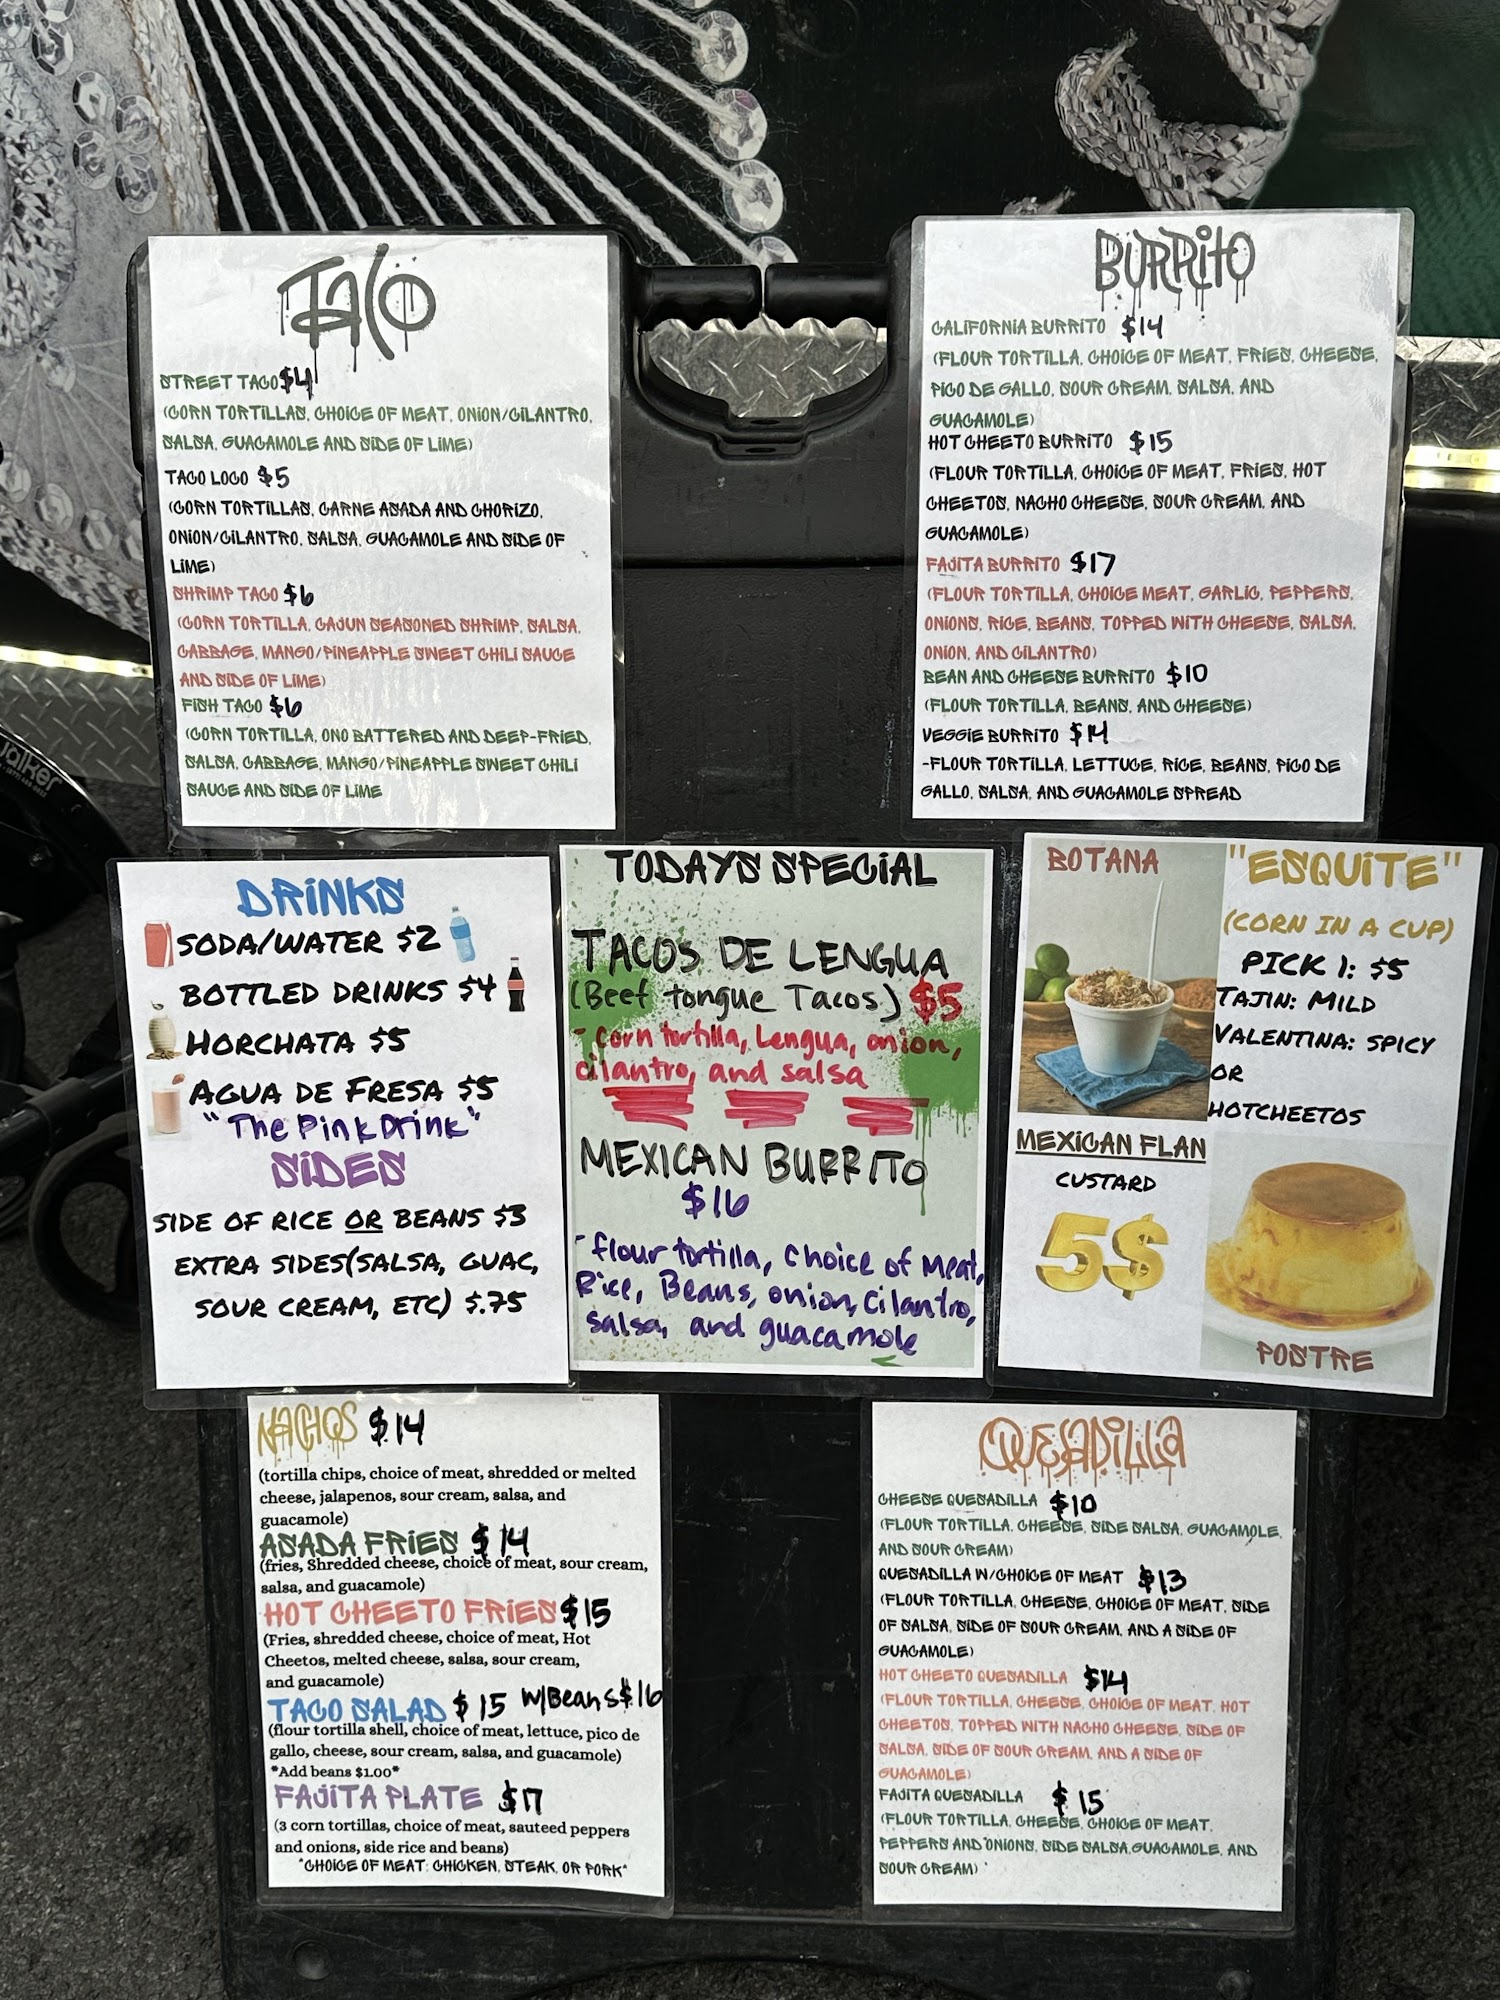 TACO
STREET TACO $4
(CORN TORTILLAS, CHOICE OF MEAT, ONION/CILANTRO,
SALSA, GUACAMOLE AND SIDE OF LIME)
TACO LOCO $5
(CORN TORTILLAS, CARNE ASADA AND CHORIZO,
ONION/CILANTRO, SALSA, GUACAMOLE AND SIDE OF
LIME)
SHRIMP TACO $6
(CORN TORTILLA, CAJUN SEASONED SHRIMP, SALSA,
CABBAGE, MANGO/PINEAPPLE SWEET CHILI SAUCE
AND SIDE OF LIME)
FISH TACO $6
(CORN TORTILLA, ONO BATTERED AND DEEP-FRIED,
SALSA, CABBAGE, MANGO/PINEAPPLE SWEET CHILI
SAUCE AND SIDE OF LIME
BURRITO
CALIFORNIA BURRITO $14
(FLOUR TORTILLA, CHOICE OF MEAT, FRIES, CHEESE,
PICO DE GALLO, SOUR CREAM, SALSA, AND
GUACAMOLE)
HOT CHEETO BURRITO $15
(FLOUR TORTILLA, CHOICE OF MEAT, FRIES, HOT
CHEETOS, NACHO CHEESE, SOUR CREAM, AND
GUACAMOLE)
FAJITA BURRITO $17
(FLOUR TORTILLA, CHOICE MEAT, GARLIC, PEPPERS,
ONIONS, RICE, BEANS, TOPPED WITH CHEESE, SALSA,
ONION, AND CILANTRO)
BEAN AND CHEESE BURRITO $10
(FLOUR TORTILLA, BEANS, AND CHEESE)
VEGGIE BURRITO $14
-FLOUR TORTILLA, LETTUCE, RICE, BEANS, PICO DE
GALLO, SALSA, AND GUACAMOLE SPREAD
DRINKS
SODA/WATER $2
BOTTLED DRINKS $4
HORCHATA $5
AGUA DE FRESA $5
"The Pink Drink"
SIDES
SIDE OF RICE OR BEANS $3
EXTRA SIDES(SALSA, GUAC,
SOUR CREAM, ETC) $.75
TODAYS SPECIAL
TACOS DE LENGUA
(Beef tongue Tacos) $5
- corn tortilla, Lengua, onion,
cilantro, and salsa
MEXICAN BURRITO
$16
- flour tortilla, Choice of Meat,
Rice, Beans, onion, cilantro,
salsa, and guacamole
BOTANA
"ESQUITE"
(CORN IN A CUP)
PICK 1: $5
TAJIN: MILD
VALENTINA: SPICY
OR
HOTCHEETOS
MEXICAN FLAN
CUSTARD
5$
POSTRE
NACHOS $14
(tortilla chips, choice of meat, shredded or melted
cheese, jalapenos, sour cream, salsa, and
guacamole)
ASADA FRIES $14
(fries, Shredded cheese, choice of meat, sour cream,
salsa, and guacamole)
HOT CHEETO FRIES $15
(Fries, shredded cheese, choice of meat, Hot
Cheetos, melted cheese, salsa, sour cream,
and guacamole)
TACO SALAD $15 W/Beans $16
(flour tortilla shell, choice of meat, lettuce, pico de
gallo, cheese, sour cream, salsa, and guacamole)
*Add beans $1.00*
FAJITA PLATE $17
(3 corn tortillas, choice of meat, sauteed peppers
and onions, side rice and beans)
*CHOICE OF MEAT: CHICKEN, STEAK, OR PORK*
QUESADILLA
CHEESE QUESADILLA $10
(FLOUR TORTILLA, CHEESE, SIDE SALSA, GUACAMOLE,
AND SOUR CREAM)
QUESADILLA W/CHOICE OF MEAT $13
(FLOUR TORTILLA, CHEESE, CHOICE OF MEAT, SIDE
OF SALSA, SIDE OF SOUR CREAM, AND A SIDE OF
GUACAMOLE)
HOT CHEETO QUESADILLA $14
(FLOUR TORTILLA, CHEESE, CHOICE OF MEAT, HOT
CHEETOS, TOPPED WITH NACHO CHEESE, SIDE OF
SALSA, SIDE OF SOUR CREAM, AND A SIDE OF
GUACAMOLE)
FAJITA QUESADILLA $15
(FLOUR TORTILLA, CHEESE, CHOICE OF MEAT,
PEPPERS AND ONIONS, SIDE SALSA, GUACAMOLE, AND
SOUR CREAM)